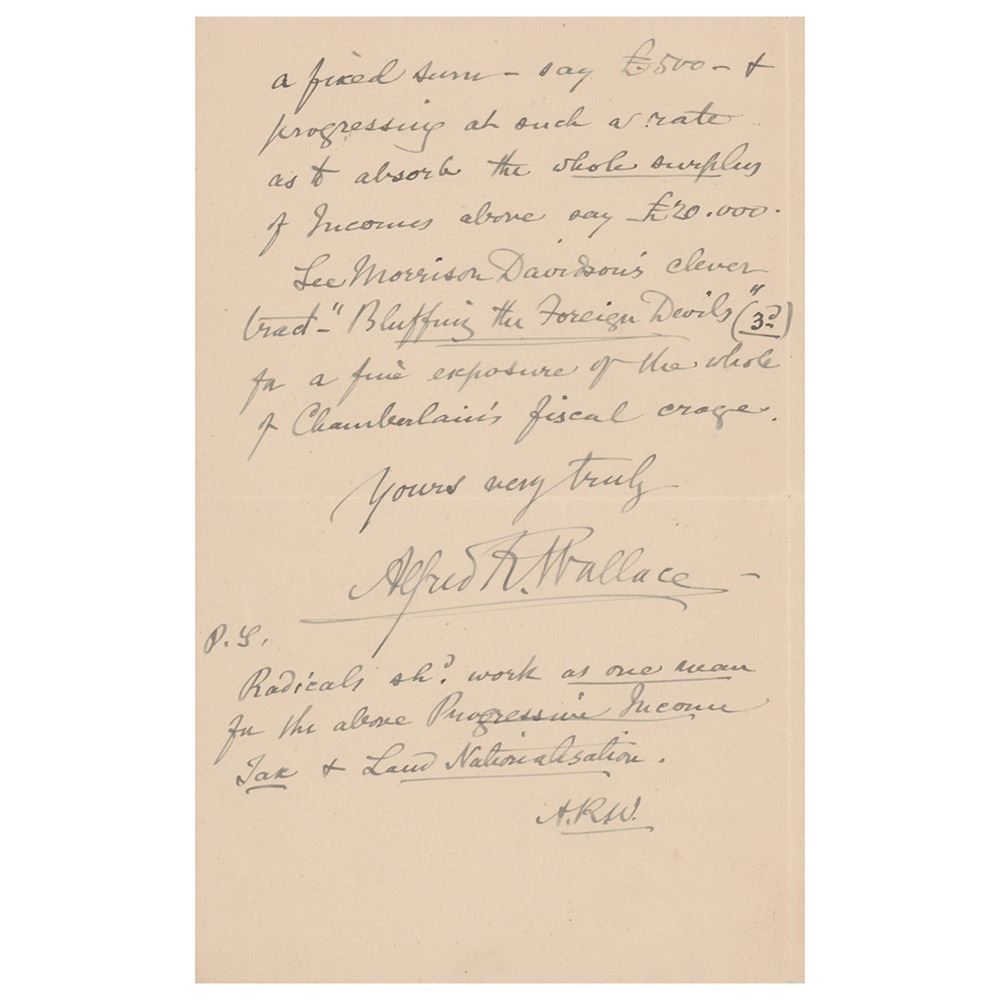 a fixed sum – say £500 – &
progressing at such a rate
as to absorb the whole surplus
of Incomes above say £20.000.
See Morrison Davidson's clever
tract – "Bluffing the Foreign Devils" (3d)
for a fine exposure of the whole
of Chamberlain's fiscal craze.
Yours very truly
Alfred R. Wallace –
P.S.
Radicals shd. work as one man
for the above Progressive Income
Tax & Land Nationalisation.
A.R.W.